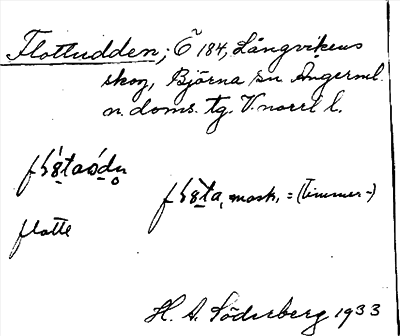 Flottudden; Ö 184, Långvikens
skog, Björna sn Ångerml.
n. doms. tg. V.norrl l.
flåta, mask. = (timmer-)
flotte
H. A. Söderberg 1933